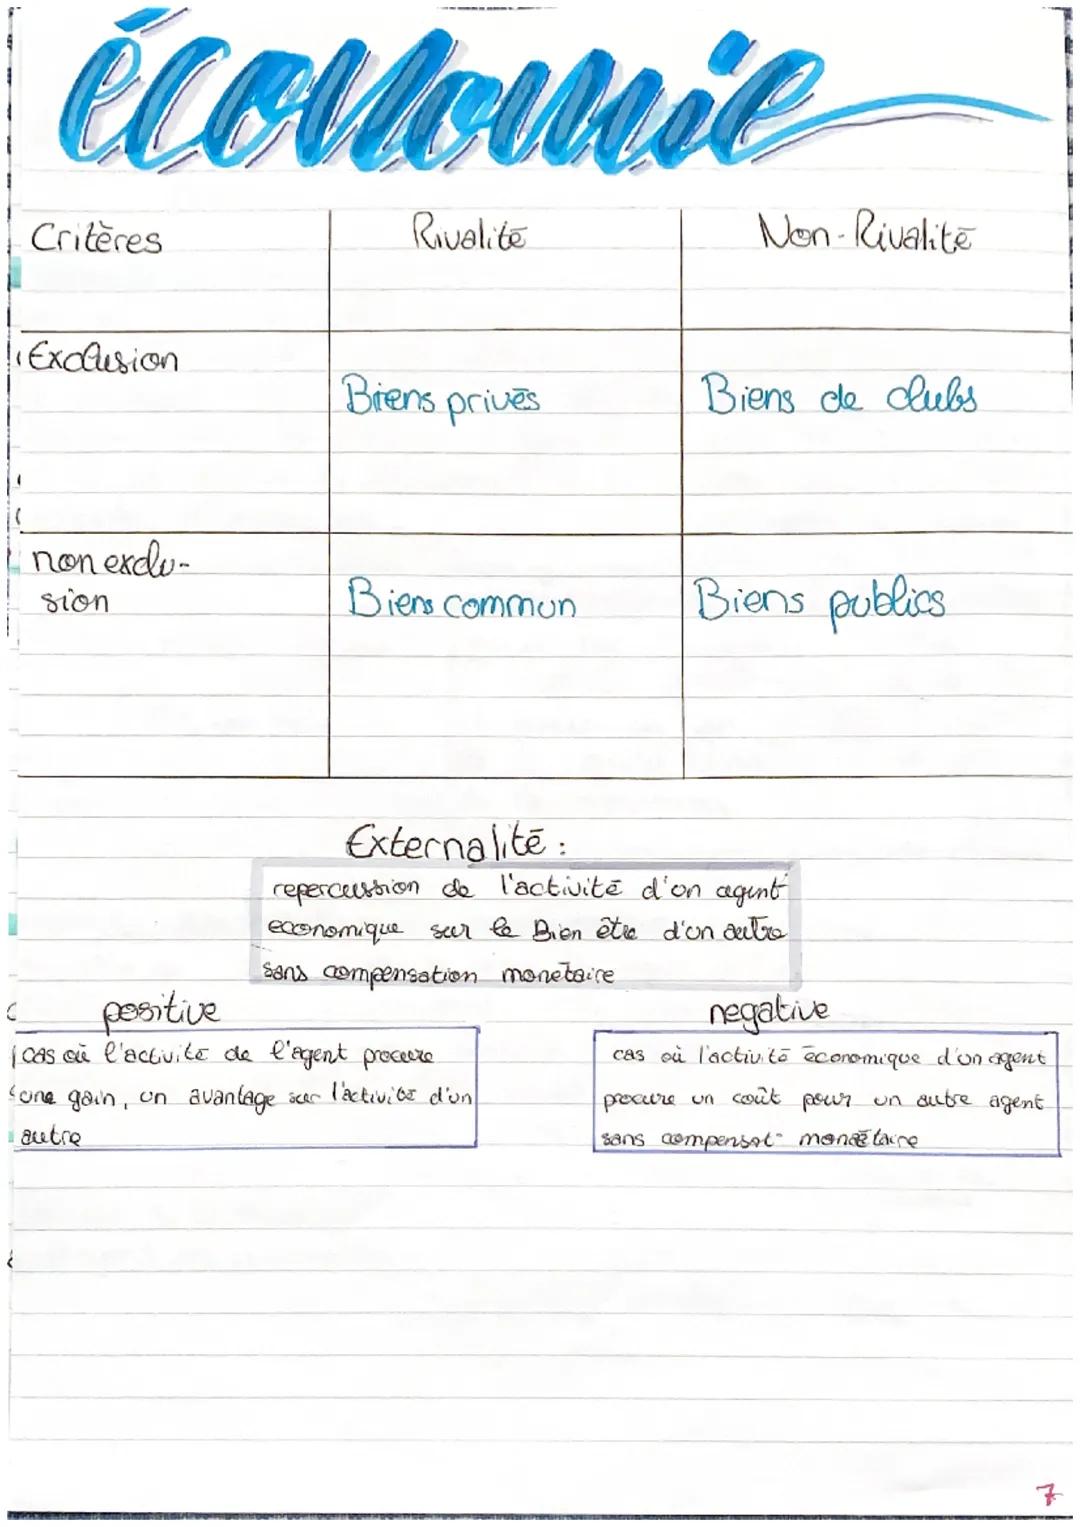 économie
Critères Rivalité Non-Rivalité
Exclusion
Biens privés Biens de clubs
non exclu-
sion
Biens commun Biens publics
Externalité :
repercussion de l'activité d'un agent
economique sur le Bien être d'un autre
sans compensation monetaire
positive negative
cas où l'activité de l'agent procure
une gain, un avantage sur l'activité d'un
autre
cas où l'activité économique d'un agent
procure un coût pour un autre agent
sans compensat° monétaire
7